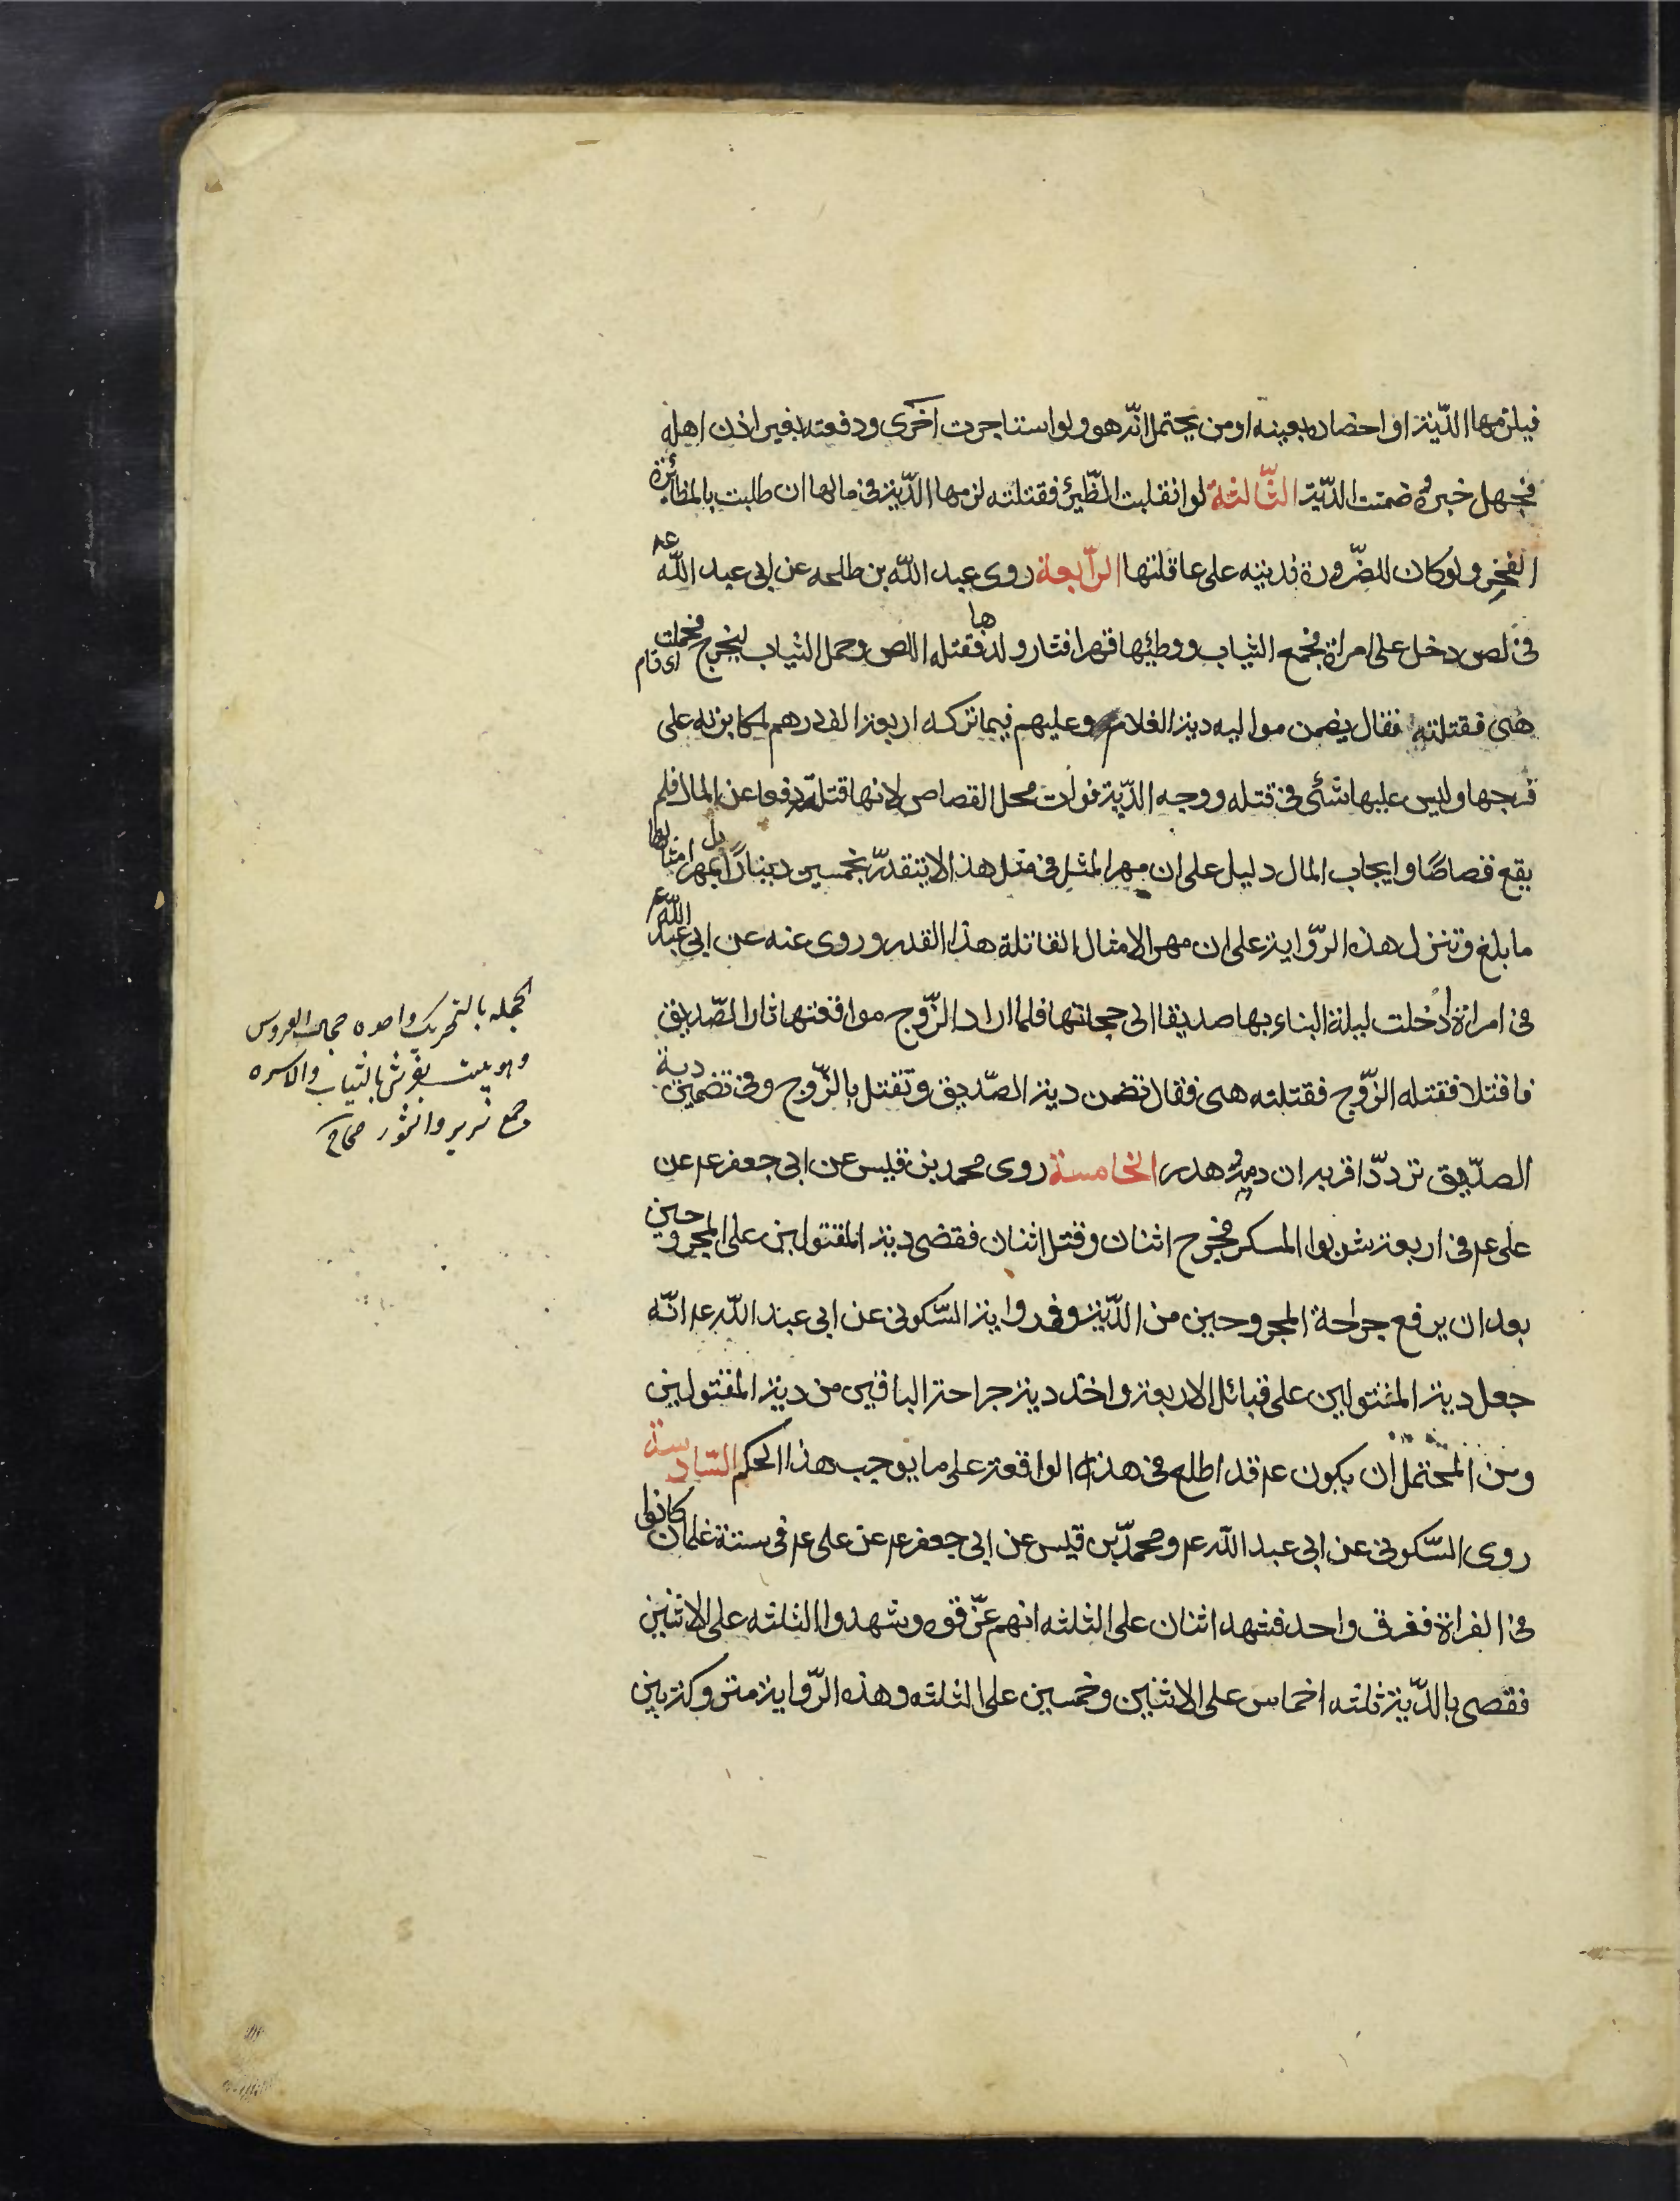 فيلزمها الدّية او احضاره بعينه او من يحتمل انّه هو ولو استاجرت اخرى ودفعته بغير اذن اهله
فجهل خبره ضمنت الدّية الثّالثة لو انقلبت الظّير فقتلته لزمها الدّية في مالها ان طلبت بالمظائرة
الفخر ولو كان للضّرورة فديته على عاقلتها الرّابعة روى عبد اللّه بن طلحه عن ابى عبد اللّه عم
في لص دخل على امراة فجمع الثياب ووطئها قهرا فثار ولدها فقتله اللص وحمل الثياب ليخرج فحملت اى قام
هى فقتلته فقال يضمن مواليه دية الغلام وعليهم فيما تركه اربعة الف درهم لمكابرته على
فرجها وليس عليها شئ في قتله ووجه الدّية فوات محل القصاص لانها قتلته دفعا عن المال فلم
يقع قصاصًا وايجاب المال دليل على ان مهر المثل في مثل هذا لا يتقدّر بخمسين دينارًا بل بمهر امثالها
ما بلغ وتنزل هذه الرّواية على ان مهر الامثال القاتلة هذا القدر وروى عنه عن ابى عبد اللّه عم
في امراة أدخلت ليلة البناء بها صديقا الى حجلتها فلما اراد الزّوج مواقعتها ثار الصّديق
فاقتتلا فقتله الزّوج فقتلته هى فقال تضمن دية الصّديق وتقتل بالزّوج وفي تضمين دية
الصدّيق تردّد اقربه ان دمه هدر الخامسة روى محمد بن قيس عن ابى جعفر عم عن
على عم في اربعة شربوا المسكر فجرح اثنان وقتل اثنان فقضى دية المقتولين على المجروحين
بعد ان يرفع جراحة المجروحين من الدّية وفى رواية السّكونى عن ابى عبد اللّه عم انّه
جعل دية المقتولين على قبائل الاربعة واخذ دية جراحة الباقين من دية المقتولين
ومن المحتمل ان يكون عم قد اطلع في هذه الواقعة على ما يوجب هذا الحكم السّادسة
روى السّكونى عن ابى عبد اللّه عم ومحمدّ بن قيس عن ابى جعفر عم عن على عم فى ستة غلمان كانوا
في الفراة فغرق واحد فشهد اثنان على الثلثه انهم غرّقوه وشهدوا الثلثه على الاثنين
فقضى بالدّية ثلثه اخماس على الاثنين وخمسين على الثلثه وهذه الرّواية متروكة بين
الحجله بالتحريك واحده حجال العروس
وهو بيت يفرش بالثياب والاسره